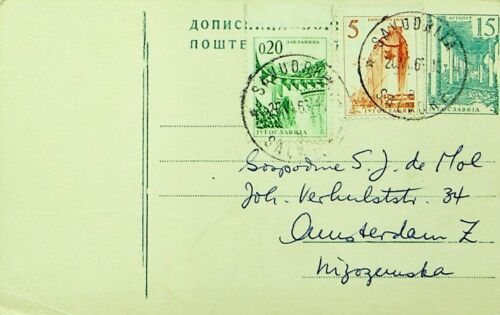 ДОПИСН
ПОШТЕ
0,20
ЈАБЛАНИЦА
ЈУГОСЛАВИЈА
5
15
АУТОПУТ
ЈУГОСЛАВИЈА
SAVUDRIJA
SAVUDRIJA
Gospodine S. J. de Mol
Joh. Verhulststr. 34
Amsterdam Z
Nizozemska